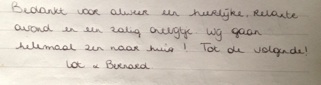 Bedankt voor alweer een heerlijke, relaxte
avond en een zalig ontbijtje. Wij gaan
helemaal zen naar huis! Tot de volgende!
Lot & Bernard